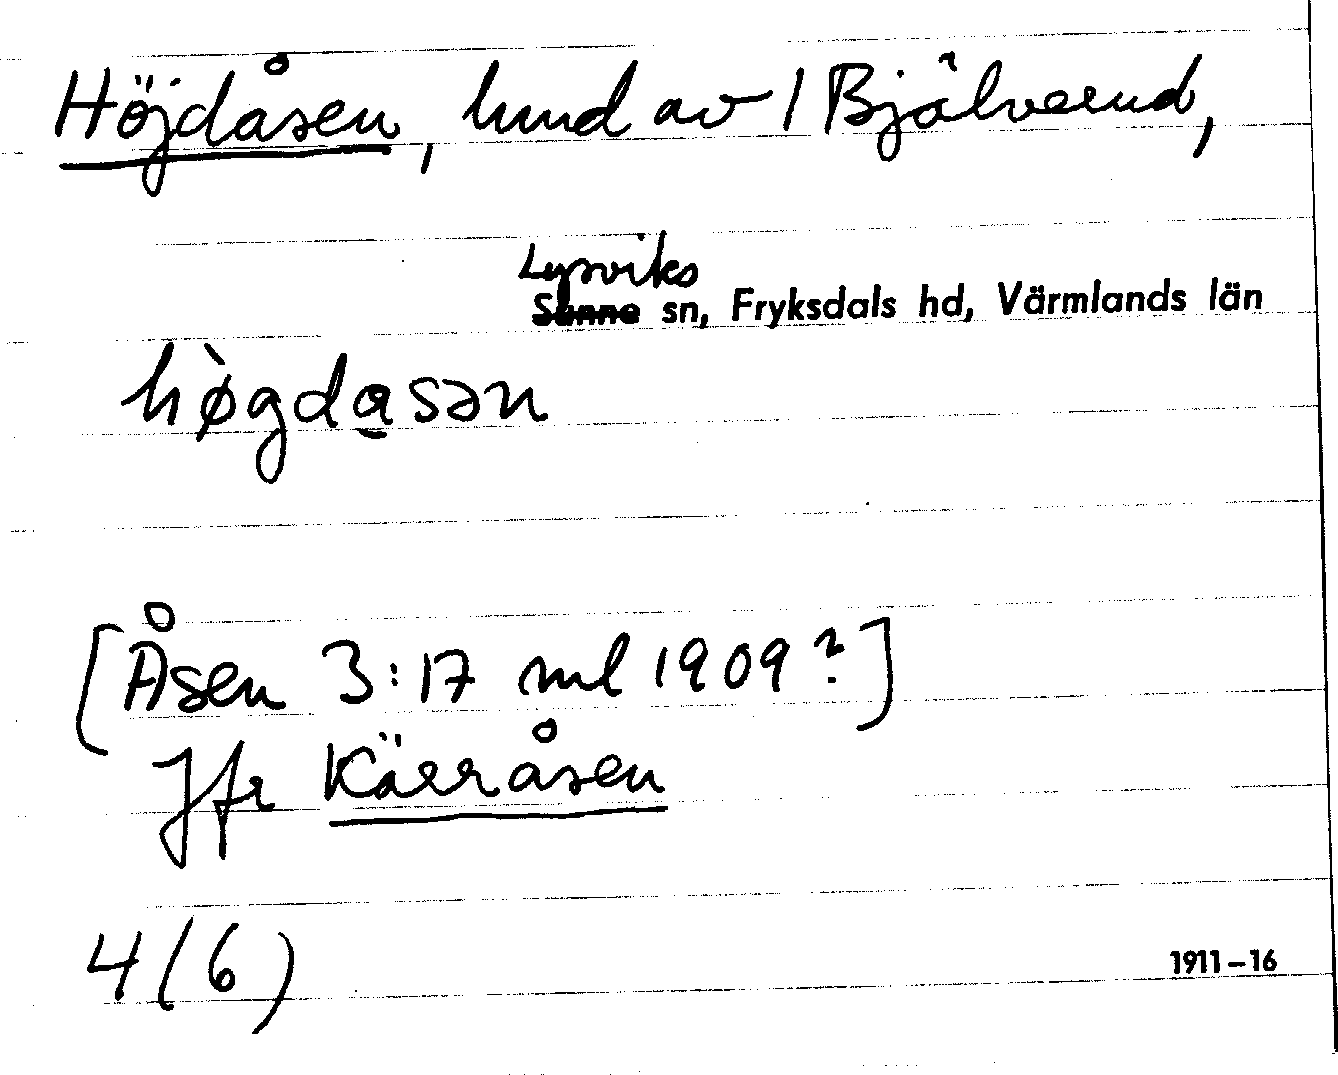 Höjdåsen, hmd av 1 Bjälverud,
Lysviks
Sunne sn, Fryksdals hd, Värmlands län
hø̀gdąsən
[Åsen 3:17 ml 1909?]
Jfr Kärråsen
4(6)
1911–16